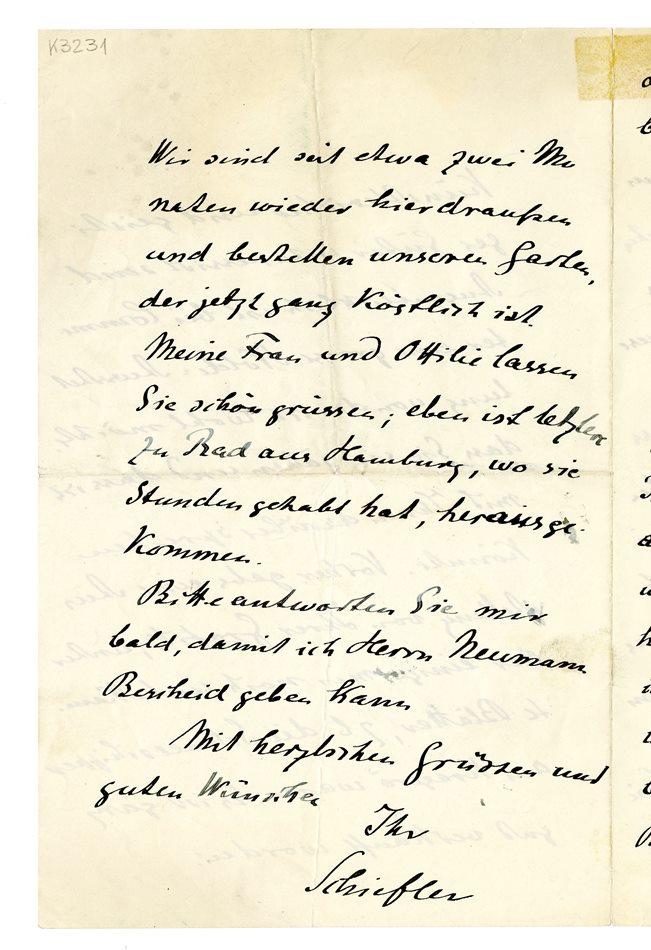 K3231
Wir sind seit etwa zwei Mo
naten wieder hierdraußen
und bestellen unseren Garten,
der jetzt ganz köstlich ist.
Meine Frau und Ottilie lassen
Sie schön grüssen; eben ist letztere
zu Rad aus Hamburg, wo sie
Stunden gehabt hat, herausge
kommen.
Bitte antworten Sie mir
bald, damit ich Herrn Neumann
Bescheid geben kann
Mit herzlichen Grüssen und
guten Wünschen
Ihr
Schiefler